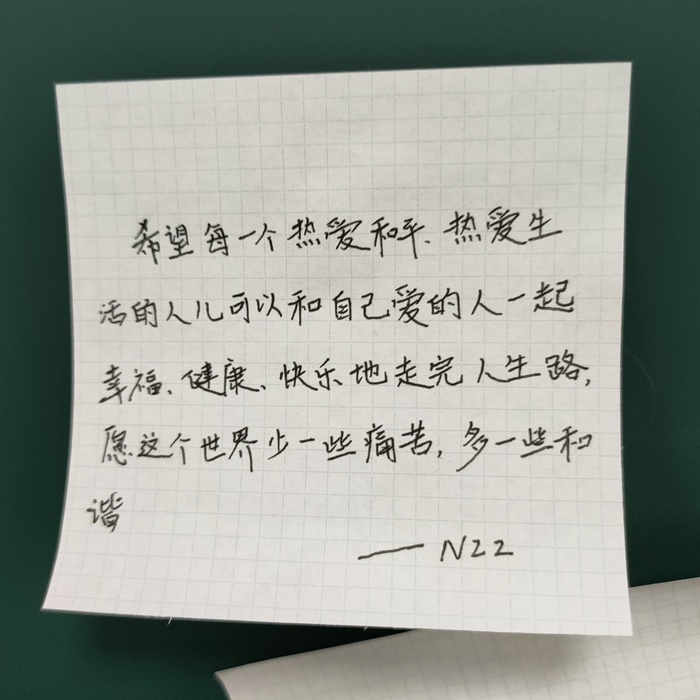 希望每一个热爱和平、热爱生
活的人儿可以和自己爱的人一起
幸福、健康、快乐地走完人生路,
愿这个世界少一些痛苦,多一些和
谐
——N22